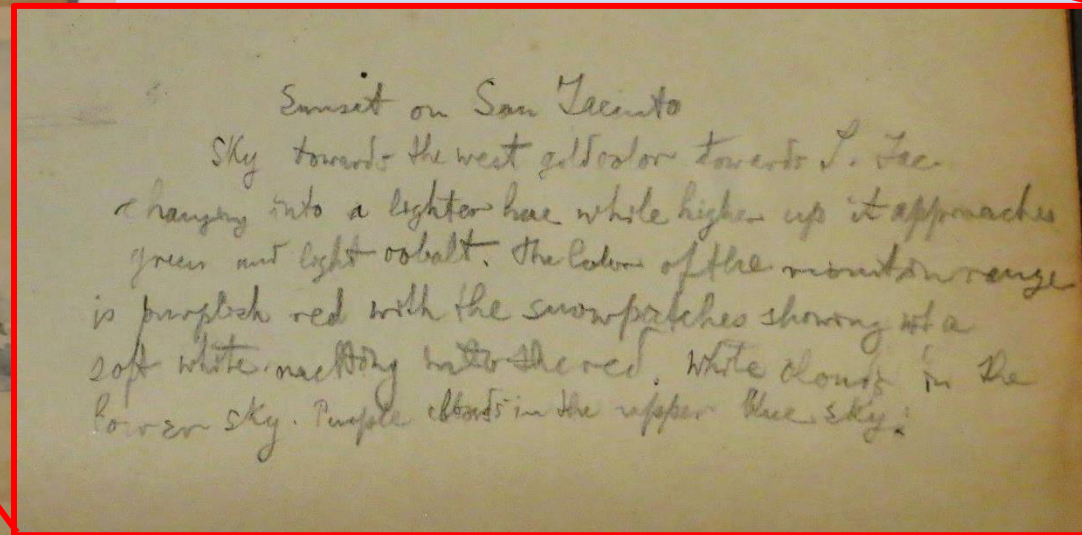 Sunset on San Jacinto
Sky towards the west gold color towards S. Jac.
changing into a lighter hue while higher up it approaches
green and light cobalt. The Color of the mountain range
is purplish red with the snowpatches showing of a
soft white melting into the red. White clouds in the
lower sky. Purple clouds in the upper blue sky.